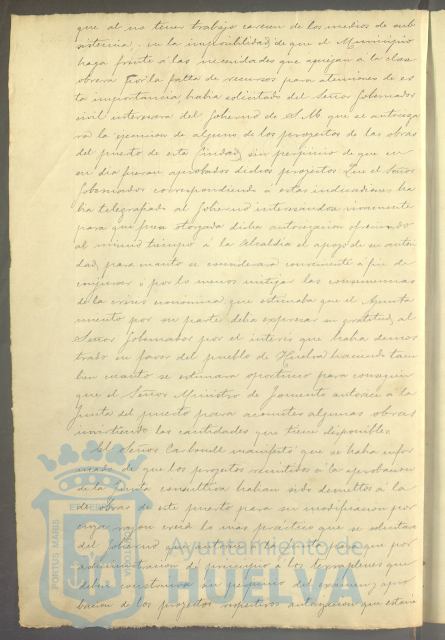 que al no tener trabajo carecen de los medios de sub
sistencia, en la imposibilidad de que el Municipio
haga frente á las necesidades que aquejan á la clase
obrera por la falta de recursos para atenciones de es
ta importancia, habia solicitado del Señor Gobernador
civil interesara del Gobierno de S.M. que se autoriza
ra la ejecucion de alguno de los proyectos de las obras
del puerto de esta Ciudad, sin perjuicio de que en
su dia fueran aprobados dichos proyectos. Que el Señor
Gobernador correspondiendo á estas indicaciones ha
bia telegrafiado al Gobierno interesandose vivamente
para que fuese otorgada dicha autorizacion ofreciendo
al mismo tiempo á la Alcaldia el apoyo de su autori
dad, para cuanto se considerara conveniente á fin de
conjurar ó por lo menos mitigar las consecuencias
de la crisis económica, que estimaba que el Ayunta
miento por su parte debia expresar su gratitud al
Señor Gobernador por el interés que habia demos
trado en favor del pueblo de Huelva haciendo tam
bien cuanto se estimara oportuno para conseguir
que el Señor Ministro de Fomento autorice á la
Junta del puerto para acometer algunas obras
invirtiendo las cantidades que tiene disponibles.
El Señor Carbonell manifestó que se habia infor
mado de que los proyectos remitidos á la aprobacion
de la Junta consultiva habian sido devueltos á la
de obras de este puerto para su modificacion por
cuya razon creia lo mas práctico que se solicitara
del Gobierno que autorizara á esta para que por
administracion de principio á los
debia construirse sin perjuicio del examen y apro
bacion de los proyectos respectivos autorizacion que estaria
PORTUS MARIS
Ayuntamiento de
HUELVA